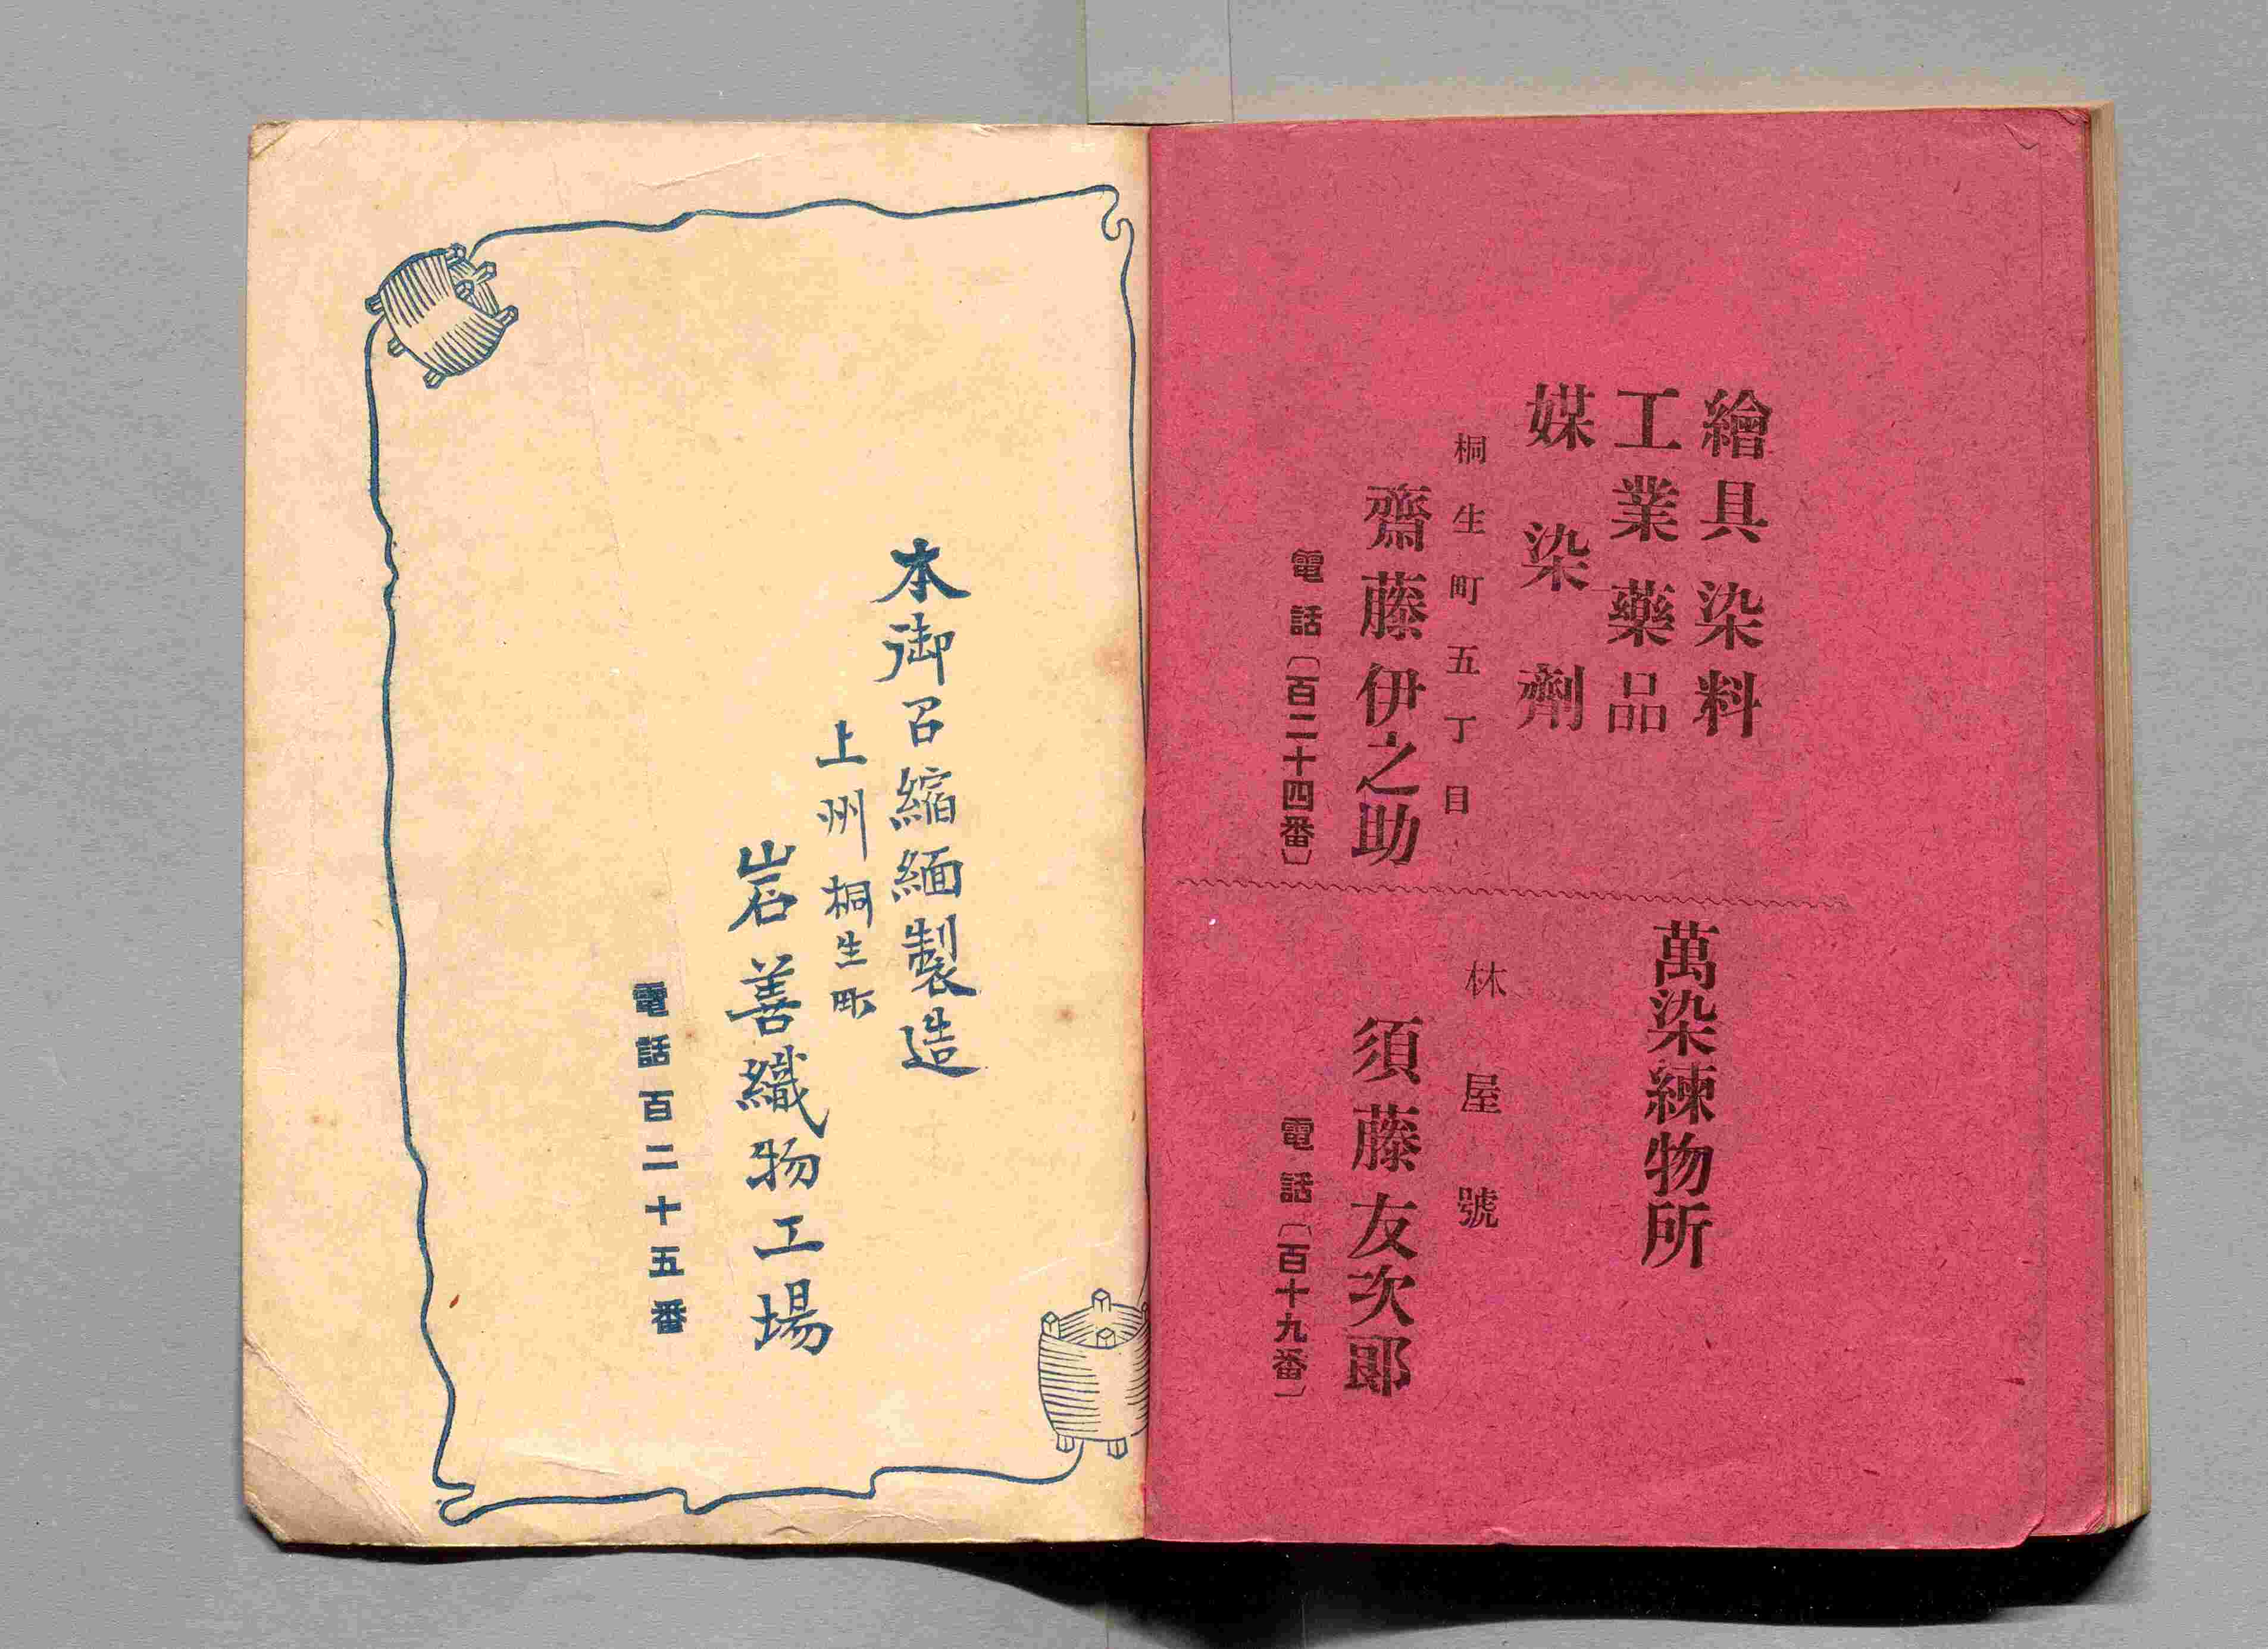 繪具染料
工業藥品
媒染劑
桐生町五丁目
齋藤伊之助
電話〔百二十四番〕
萬染練物所
林屋號
須藤友次郎
電話〔百十九番〕
本御召縮緬製造
上州桐生町
岩善織物工場
電話百二十五番